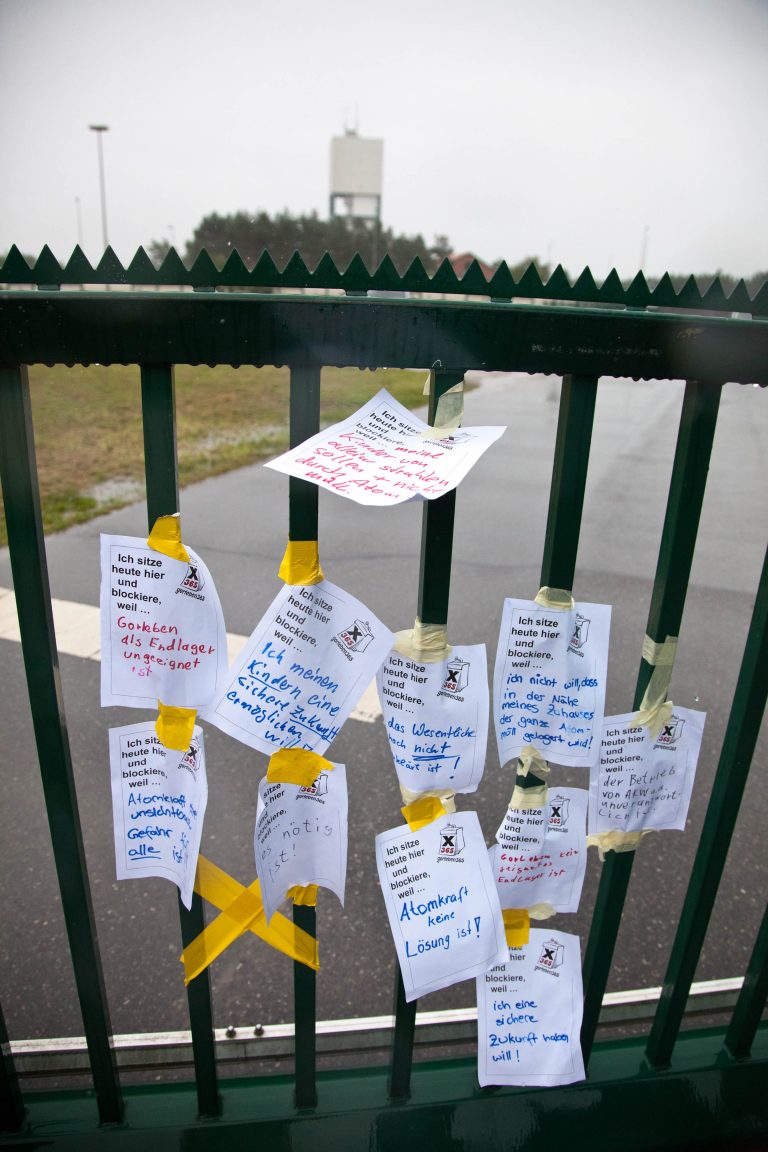 Ich sitze
heute hier
und
blockiere,
weil ... meine
Kinder von
alleine strahlen
sollen + nicht
durch Atom
müll.
Ich sitze
heute hier
und
blockiere,
weil ...
X
365
gorleben365
Gorleben
als Endlager
ungeeignet
ist
Ich sitze
heute hier
und
blockiere,
weil ...
X
365
gorleben365
Ich meinen
Kindern eine
sichere Zukunft
ermöglichen
will!
sitze
heute hier
und
blockiere,
weil ...
X
365
gorleben365
das Wesentliche
noch nicht
ist!
Ich sitze
heute hier
und
blockiere,
weil ...
X
365
gorleben365
ich nicht will, dass
in der Nähe
meines Zuhauses
der ganze Atom-
müll gelagert wird!
Ich sitze
heute hier
und
blockiere,
weil ...
X
365
gorleben365
der Betrieb
von AKWs
unverantwort-
lich
Ich sitze
heute hier
und
blockiere,
weil ...
365
gorleben365
Atomkraft
Gefahr
alle ist
sitze
heute hier
und
blockiere,
weil ...
gorleben365
es nötig
ist!
Ich sitze
heute hier
und
blockiere,
weil ...
X
365
gorleben365
Atomkraft
keine
Lösung ist!
Ich sitze
heute
und
blockiere,
weil ...
X
365
gorleben365
Gorleben kein
geeignetes
Endlager ist
heute hier
und
blockiere,
weil ...
X
365
gorleben365
ich eine
sichere
Zukunft haben
will!